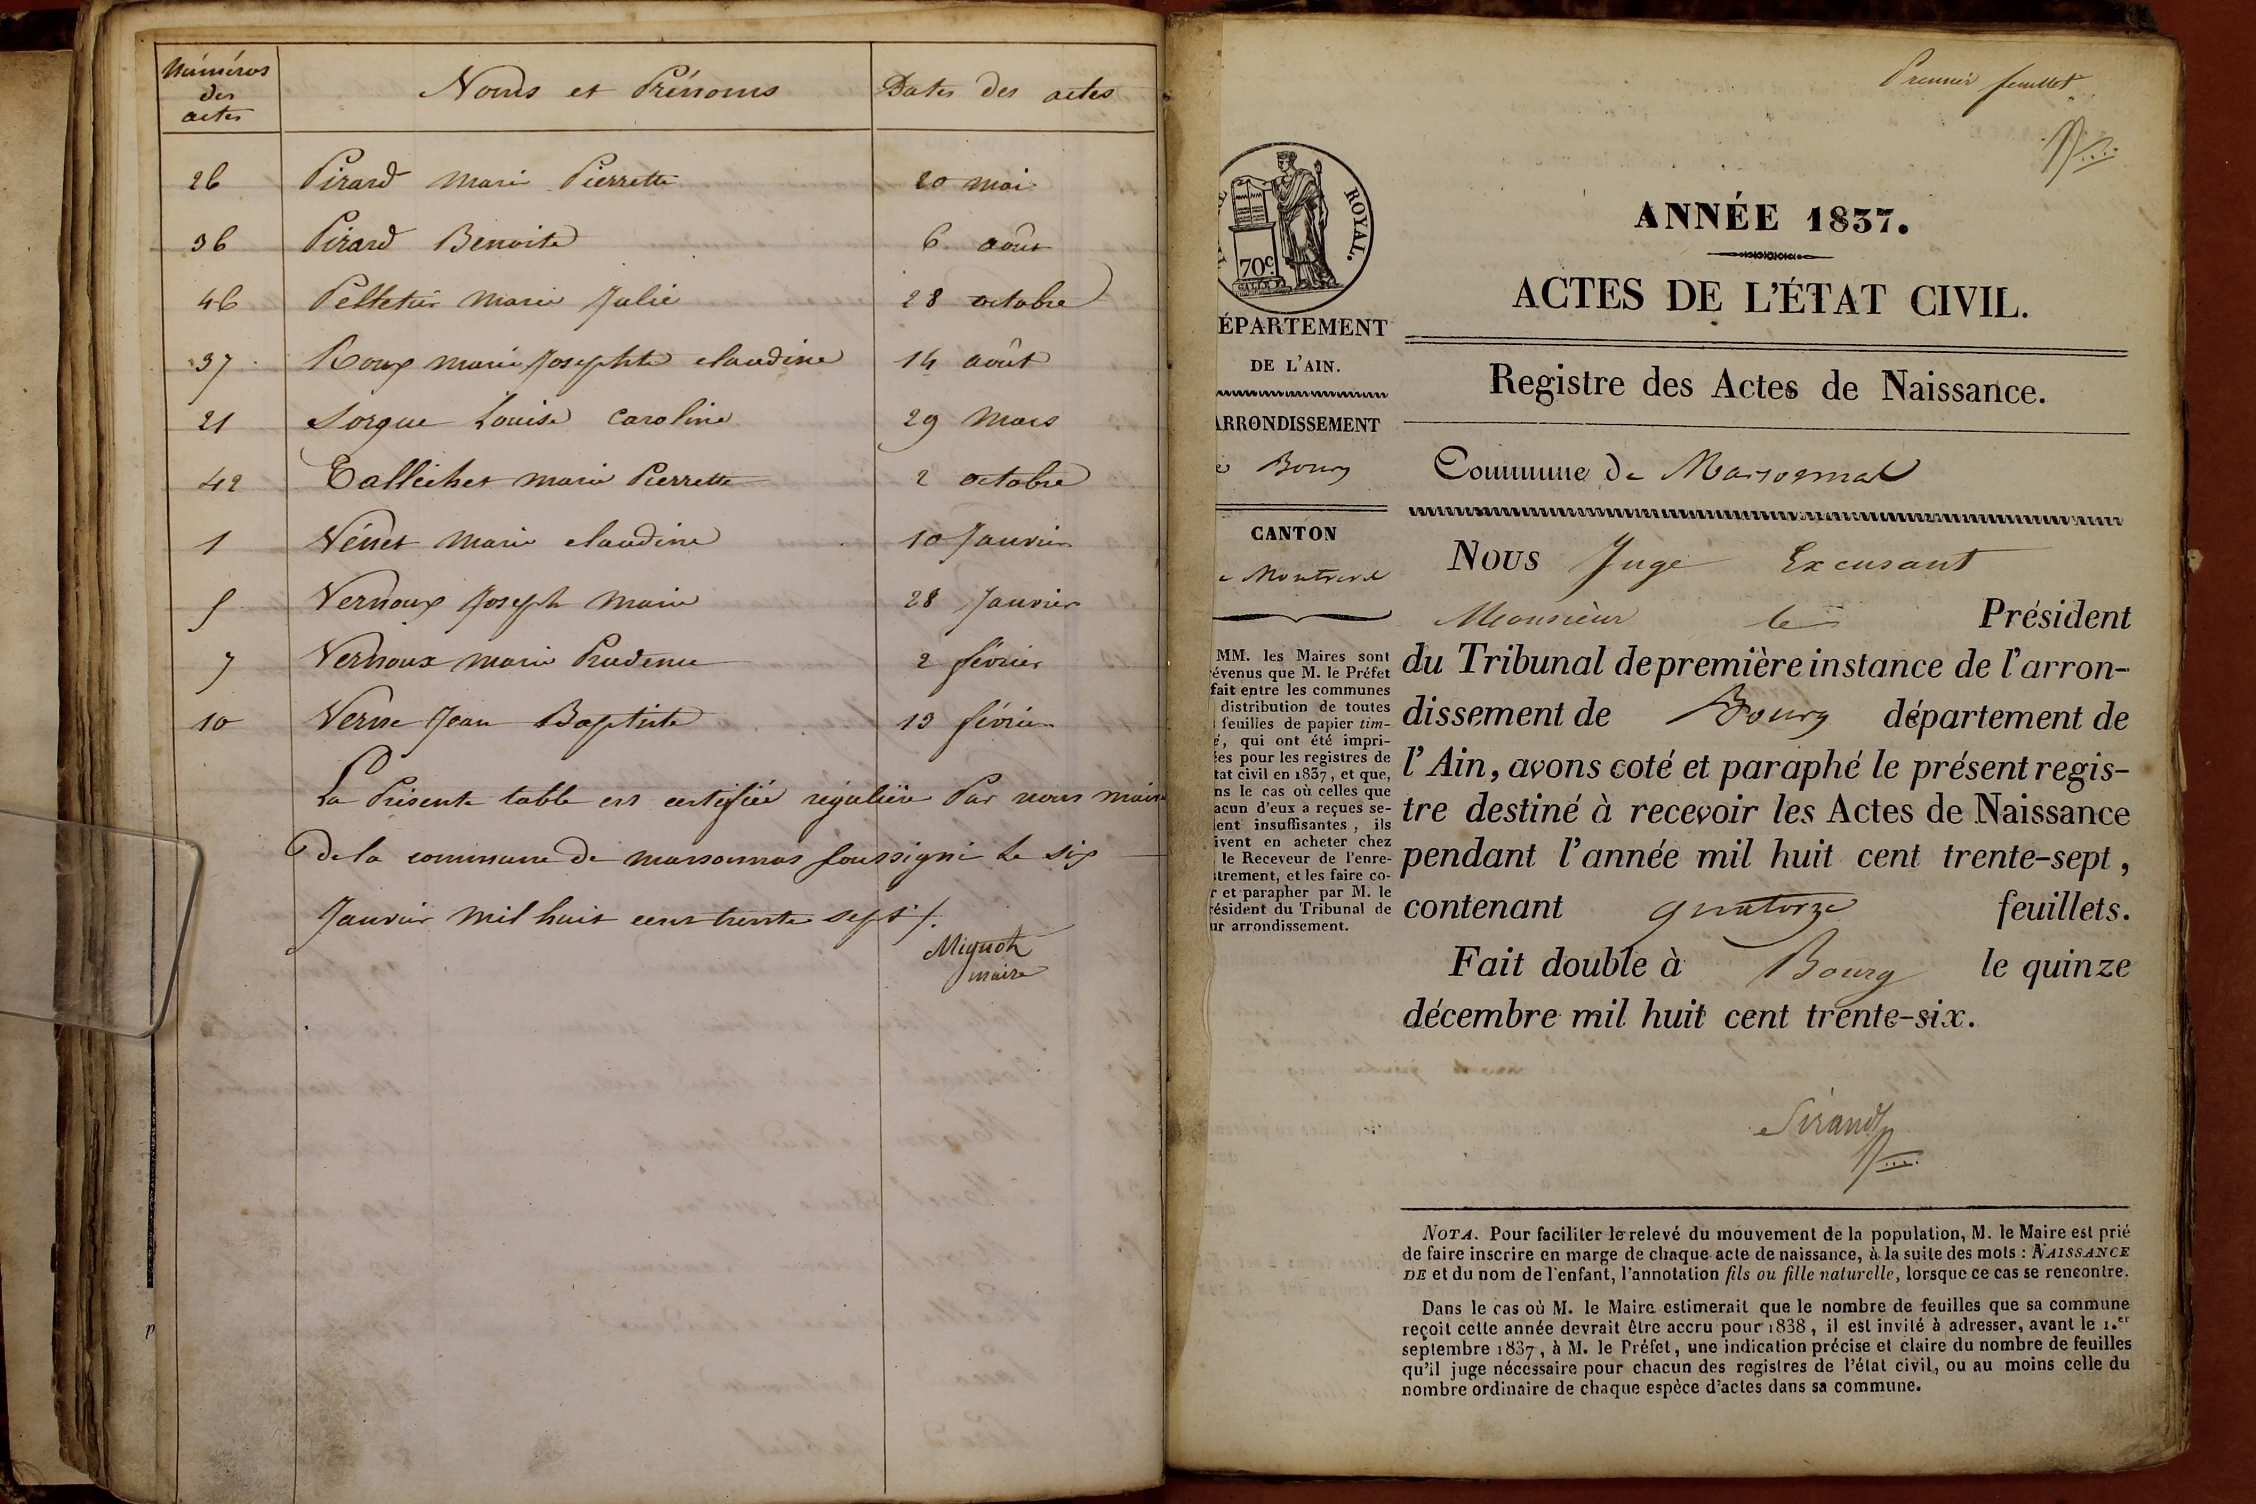 Numéros des actes Noms et Prénoms Dates des actes
26 Pirard Marie Pierrette 20 mai
36 Pirard Benoite 6 août
46 Pelletier Marie Julie 28 octobre
37 Roux Marie Josephte claudine 14 août
21 Sorgue Louise Caroline 29 Mars
42 Marie Pierrette 2 octobre
1 Vénet Marie claudine 10 Janvier
5 Vernoux Joseph Marie 28 Janvier
7 Vernoux Marie Prudence 2 février
10 Verne Jean Baptiste 13 février
La Présente table est certifiée régulière Par nous maire
de la commune de marsonnas soussigné le six
Janvier mil huit cent trente sept ./.
Mignot
maire
Premier feuillet
ROYAL.
70c.
ÉPARTEMENT
DE L'AIN.
ARRONDISSEMENT
e Bourg
CANTON
e Montrevel
MM. les Maires sont
évenus que M. le Préfet
fait entre les communes
distribution de toutes
feuilles de papier tim-
é, qui ont été impri-
ées pour les registres de
tat civil en 1837, et que,
ns le cas où celles que
acun d'eux a reçues se-
ient insuffisantes, ils
ivent en acheter chez
le Receveur de l'enre-
strement, et les faire co-
r et parapher par M. le
résident du Tribunal de
ur arrondissement.
ANNÉE 1837.
ACTES DE L'ÉTAT CIVIL.
Registre des Actes de Naissance.
Commune de Marsonnas
Nous Juge Excusant
Monsieur le Président
du Tribunal de première instance de l'arron-
dissement de Bourg département de
l'Ain, avons coté et paraphé le présent regis-
tre destiné à recevoir les Actes de Naissance
pendant l'année mil huit cent trente-sept,
contenant quatorze feuillets.
Fait double à Bourg le quinze
décembre mil huit cent trente-six.
Sirand
NOTA. Pour faciliter le relevé du mouvement de la population, M. le Maire est prié
de faire inscrire en marge de chaque acte de naissance, à la suite des mots : NAISSANCE
DE et du nom de l'enfant, l'annotation fils ou fille naturelle, lorsque ce cas se rencontre.
Dans le cas où M. le Maire estimerait que le nombre de feuilles que sa commune
reçoit cette année devrait être accru pour 1838, il est invité à adresser, avant le 1.er
septembre 1837, à M. le Préfet, une indication précise et claire du nombre de feuilles
qu'il juge nécessaire pour chacun des registres de l'état civil, ou au moins celle du
nombre ordinaire de chaque espèce d'actes dans sa commune.